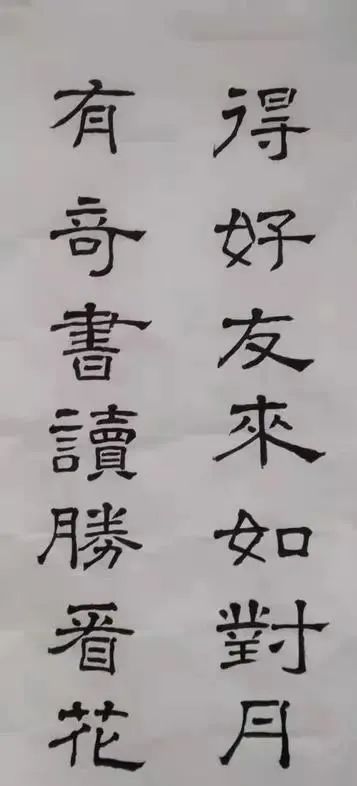 得好友來如對月
有奇書讀勝看花